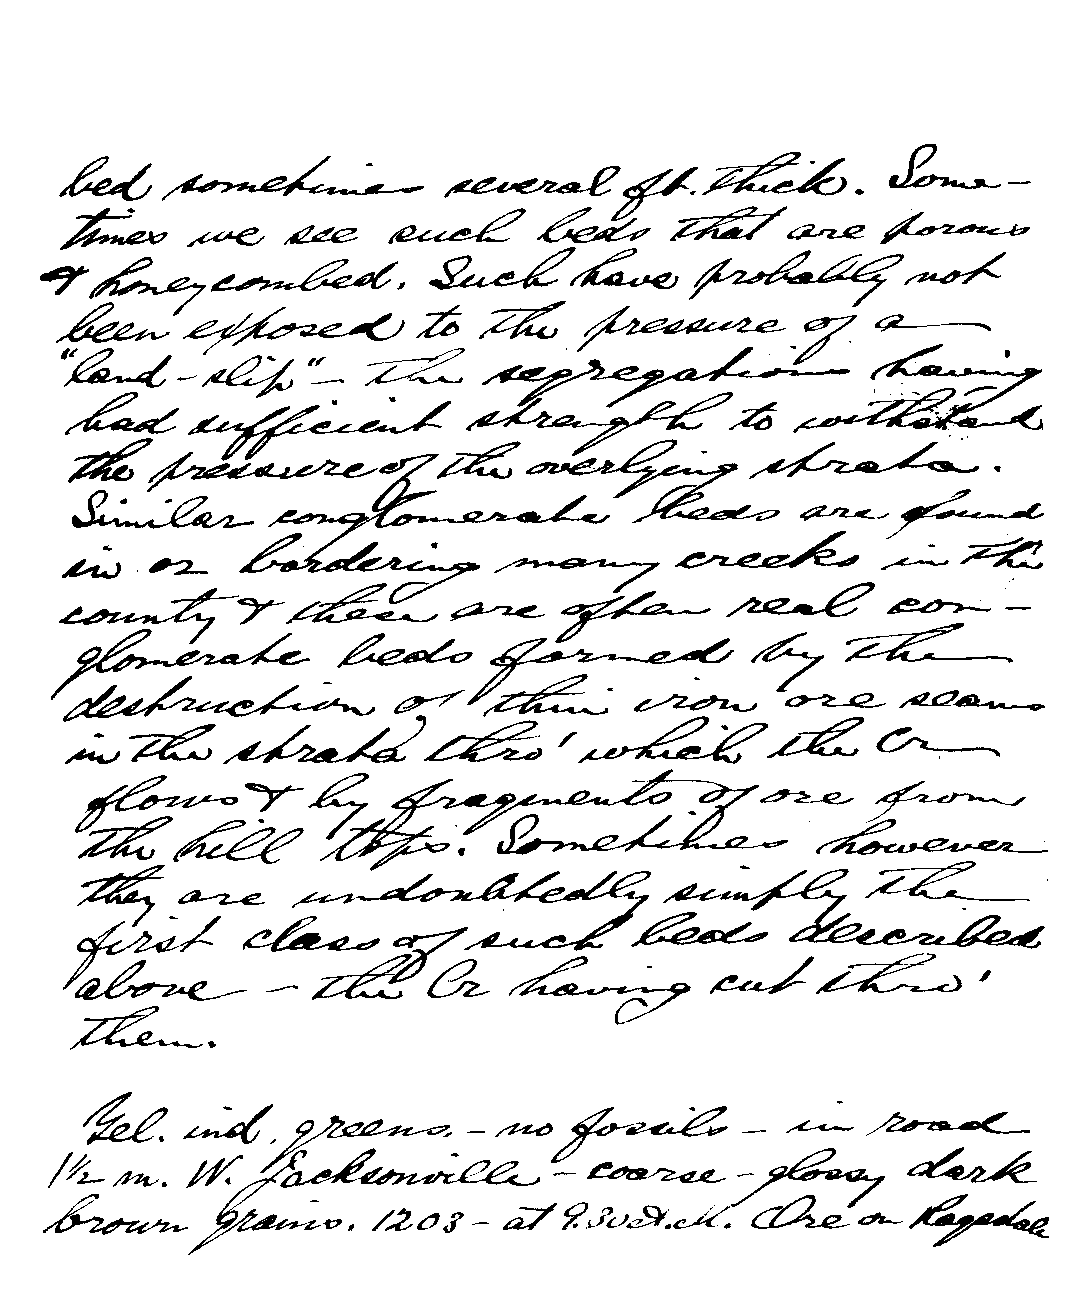 bed sometimes several ft. thick. Some-
times we see such beds that are porous
& honeycombed. Such have probably not
been exposed to the pressure of a
"land-slip" - the segregations having
had sufficient strength to withstand
the pressure of the overlying strata.
Similar conglomerate beds are found
in or bordering many creeks in the
county & these are often real con-
glomerate beds formed by the
destruction of thin iron ore seams
in the strata thro' which the Cr
flows & by fragments of ore from
the hill tops. Sometimes however
they are undoubtedly simply the
first class of such beds described
above - the Cr having cut thro'
them.
Yel. ind. greens. - no fossils - in road
1½ m. W. Jacksonville - coarse - glossy dark
brown grains. 1203 - at 9.30 A.M. Ore on Ragsdale